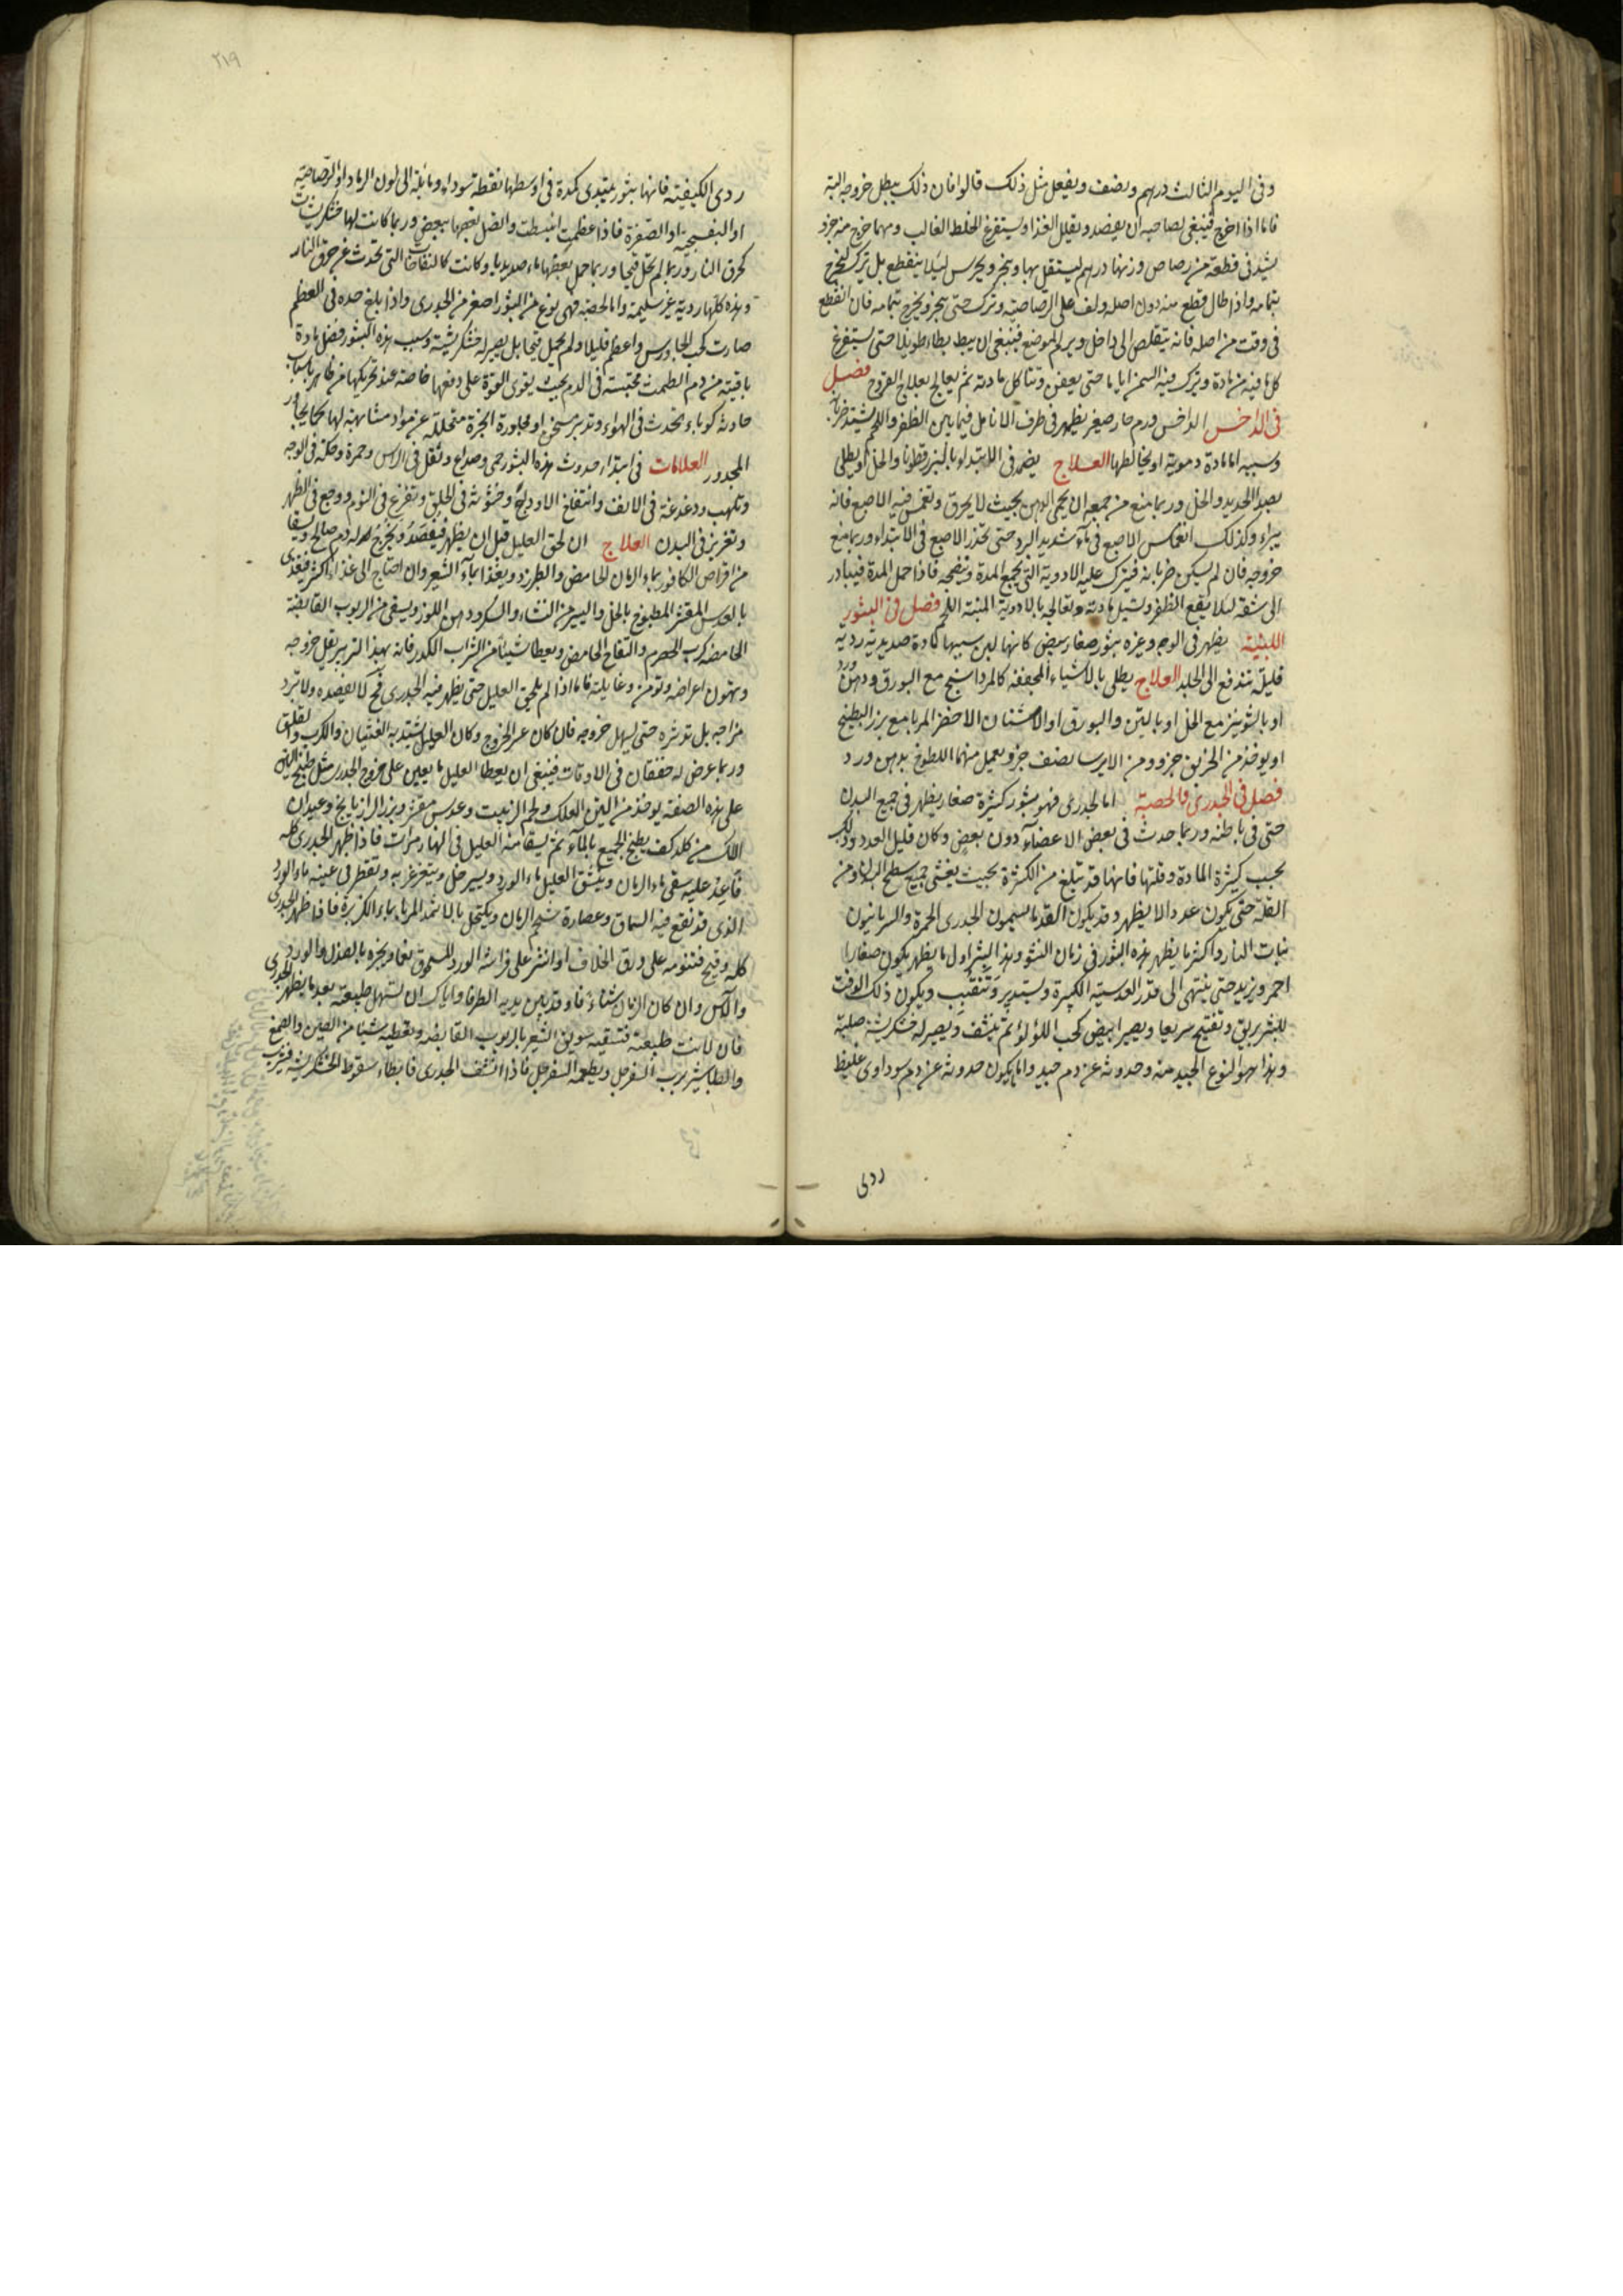 وفى اليوم الثالث درهم ونصف ويفعل مثل ذلك قالوا فان ذلك يبطل خروجه البتة
فاما اذا خرج فينبغى لصاحبه ان يفصد ويقلل الغذا ويستفرغ الخلط الغالب ومهما خرج منه جزو
يشد فى قطعة من رصاص وزنها درهم ليستقل بها وينجر ويحرس ليلا ينقطع بل يترك ليخرج
بتمامه واذا طال قطع منه دون اصله ولف على الرصاصة وترك حتى ينجر ويخرج بتمامه فان انقطع
فى وقت من اصله فانه يتقلص الى داخل ويرم الموضع فينبغى ان يبط بطا طويلا حتى يستفرغ
كل ما فيه من مادة ويترك فيه السمن اياما حتى يعفن وتتاكل مادته ثم يعالج بعلاج القروح فصل
فى الداخس الداخس ورم حار صغير يظهر فى طرف الانامل فيما بين الظفر واللحم يشتد ضربانه
وسببه اما مادة دموية او يخالطها العلاج يضمد فى الابتداء بالبزرقطونا والخل او يطلى
بصدا الحديد والخل وربما منع من جمعه ان يحمى الدهن بحيث لا يحرق وتغمس فيه الاصبع فانه
يبراء وكذلك انغماس الاصبع فى ماء شديد البرد حتى تخدر الاصبع فى الابتداء وربما منع
خروجه فان لم يسكن ضربانه فيترك عليه الادوية التى تجمع المدة وتنضجه فاذا حمل المدة فيبادر
الى شقه ليلا يقع الظفر وتسيل مادته وتعالجه بالادوية المنبتة اللحم فصل فى البثور
اللبنية يظهر فى الوجه وغيره بثور صغار بيض كانها لبن سببها مادة صديدية ردية
قليلة تندفع الى الجلد العلاج يطلى بالاشياء المجففة كالمرداسنج مع البورق ودهن ورد
او بالشونيز مع الخل او بالتين والبورق او الاشنان الاخضر المربا مع بزر البطيخ
او يوخذ من الخربق جزو ومن الايرسا نصف جزو يعمل منهما اللطوخ بدهن ورد
فصل فى الجدرى والحصبة اما الجدرى فهو بثور كثيرة صغار يظهر فى جميع البدن
حتى فى باطنه وربما حدث فى بعض الاعضاء دون بعض وكان قليل العدد وذلك
بحسب كثرة المادة وقلتها فانها قد تبلغ من الكثرة بحيث يغشى جميع سطح البدن ومن
القلة حتى يكون عددا لا يظهر وقد يكون القدما يسمون الجدرى الحمرة والسريانيون
نبات النار واكثر ما يظهر هذه البثور فى زمان النشو وهذا البثر اول ما يظهر يكون صغارا
احمر ويزيد حتى ينتهى الى قدر العدسة الكبيرة ويستدير وتتقبب ويكون ذلك الوقت
للبثر بريق وتفتيح سريعا ويصير ابيض كحب اللؤلؤ ثم ينشف ويصير له خشكريشة صلبة
وهذا هو النوع الجيد منه وحدوثه عن دم جيد واما يكون حدوثه عن دم سوداوى غليظ
ردى
٢١٩
ردى الكيفية فانها بثور يبتدى كمدة فى اوسطها نقطة سوداء ومائلة الى لون الرماد او الرصاصية
او البنفسجية او الصفرة فاذا عظمت انبسطت واتصل بعضها ببعض وربما كانت لها خشكريشات
كحرق النار وربما لم تحل قيحا وربما حمل بعضها ماء صديديا وكانت كالنفاخات التى تحدث عن حرق النار
وهذه كلها ردية غير سليمة واما الحصبة فهى نوع من البثور اصغر من الجدرى واذا بلغ حده فى العظم
صارت كحب الجاورس واعظم قليلا ولم يحمل قيحا بل يصير له خشكريشة وسبب هذه البثور فضل مادة
باقية من دم الطمث محتبسة فى الدم بحيث يقوى القوة على دفعها خاصة عند تحريكها من خارج باسباب
حادثة كوباء يحدث فى الهواء وتدبير مسخن او مجاورة ابخرة متحللة عن مواد مشابهة لها كما يجاور
المجدور العلامات فى ابتداء حدوث هذه البثور حمى وصداع وثقل فى الراس وحمرة وحكة فى الوجه
وتلهب ودغدغة فى الانف وانتفاخ الاوداج وخشونة فى الحلق وتفزع فى النوم ووجع فى الظهر
وتغريز فى البدن العلاج ان لحق العليل قبل ان يظهر فيفصد ويخرج له دم صالح ويسقا
من اقراص الكافور بماء الرمان الحامض والطبرزد ويغذا بماء الشعير وان احتاج الى غذاء اكثر فيغذى
بالعدس المقشر المطبوخ بالخل واليسير من النشاء والسكر ودهن اللوز ويسقى من الربوب القابضة
الحامضة كرب الحصرم والتفاح الحامض ويعطا شيئا من الشراب الكدر فانه بهذا التدبير يقل خروجه
وتهون اعراضه وتومن غايلته فاما اذا لم يلحق العليل حتى يظهر فيه الجدرى فح لا يفصده ولا تبرد
مزاجه بل تدثره حتى يسهل خروجه فان كان عسر الخروج وكان العليل يشتد به الغثيان والكرب والقلق
وربما عرض له خفقان فى الاوقات فينبغى ان يعطا العليل ما يعين على خروج الجدرى مثل طبيخ التين
على هذه الصفة يوخذ من التين العلك ولحم الزبيب وعدس مقشر وبزر الرازيانج وعيدان
اللك من كلد كف يطبخ الجميع بالماء ثم يسقا منه العليل فى النهار مرات فاذا ظهر الجدرى كله
فاعد عليه سقى ماء الرمان وينشق العليل ماء الورد ويسير خل ويتغرغر به وتقطر فى عينه ماء الورد
الذى قد نقع فيه السماق وعصارة شحم الرمان ويكتحل بالاثمد المربا بماء الكزبرة فاذا ظهر الجدرى
كله وقيح فتنومه على ورق الخلاف او انثر على فراشه الورد المسحوق ناعما وبخره بالصندل والورد
والآس وان كان الزمان شتاء فاوقد بين يديه الطرفا واياك ان تسهل طبيعته بعد ما يظهر الجدرى
فان لانت طبيعته فتسقيه سويق الشعير بالربوب القابضة وتعطيه شيئا من الطين والصمغ
والطباشير برب السفرجل ويطعمه السفرجل فاذا انشف الجدرى فابطاء سقوط الخشكريشة فيقرب